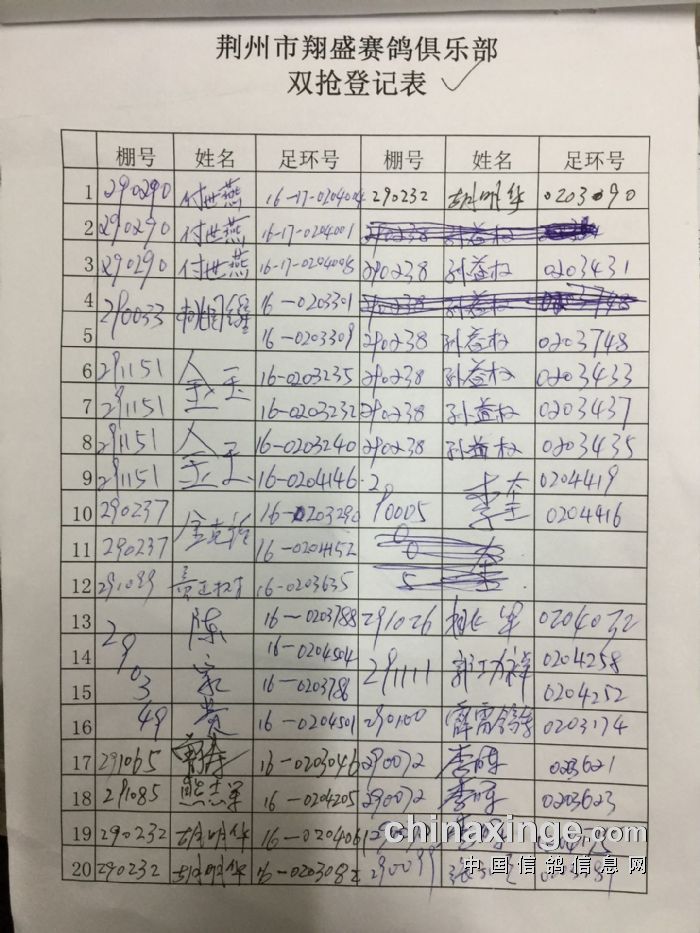 荆州市翔盛赛鸽俱乐部
双抢登记表
棚号 姓名 足环号 棚号 姓名 足环号
1 290290 付世燕 16-17-0204014 290232 胡明华
2 290290 付世燕 16-17-0204001 290238 孙益权
3 290290 付世燕 290238 孙益权 0203431
4 290033 16-0203301 290238 孙益权
5 16-0203309 290238 孙益权 0203748
6 291151 金玉 16-0203235 290238 孙益权 0203433
7 291151 16-0203232 290238 孙益权 0203437
8 291151 金玉 16-0203240 290238 孙益权 0203435
9 291151 16-0204146 290005 李奎 0204419
10 290237 16-0203290 0204416
11 290237 16-0204152
12 16-0203635
13 290349 陈家贵 16-0203788 291026 0204032
14 16-0204504 291111 郭功祥 0204258
15 16-0203786 0204252
16 16-0204501 290100 霹雳鸽舍 0203174
17 291065 16-0203046 290072 李晖 0203621
18 291085 熊志军 16-0204205 290072 李晖 0203623
19 290232 胡明华 16-0204061
20 290232 胡明华 16-0203082 290099
chinaxinge.com
中国信鸽信息网